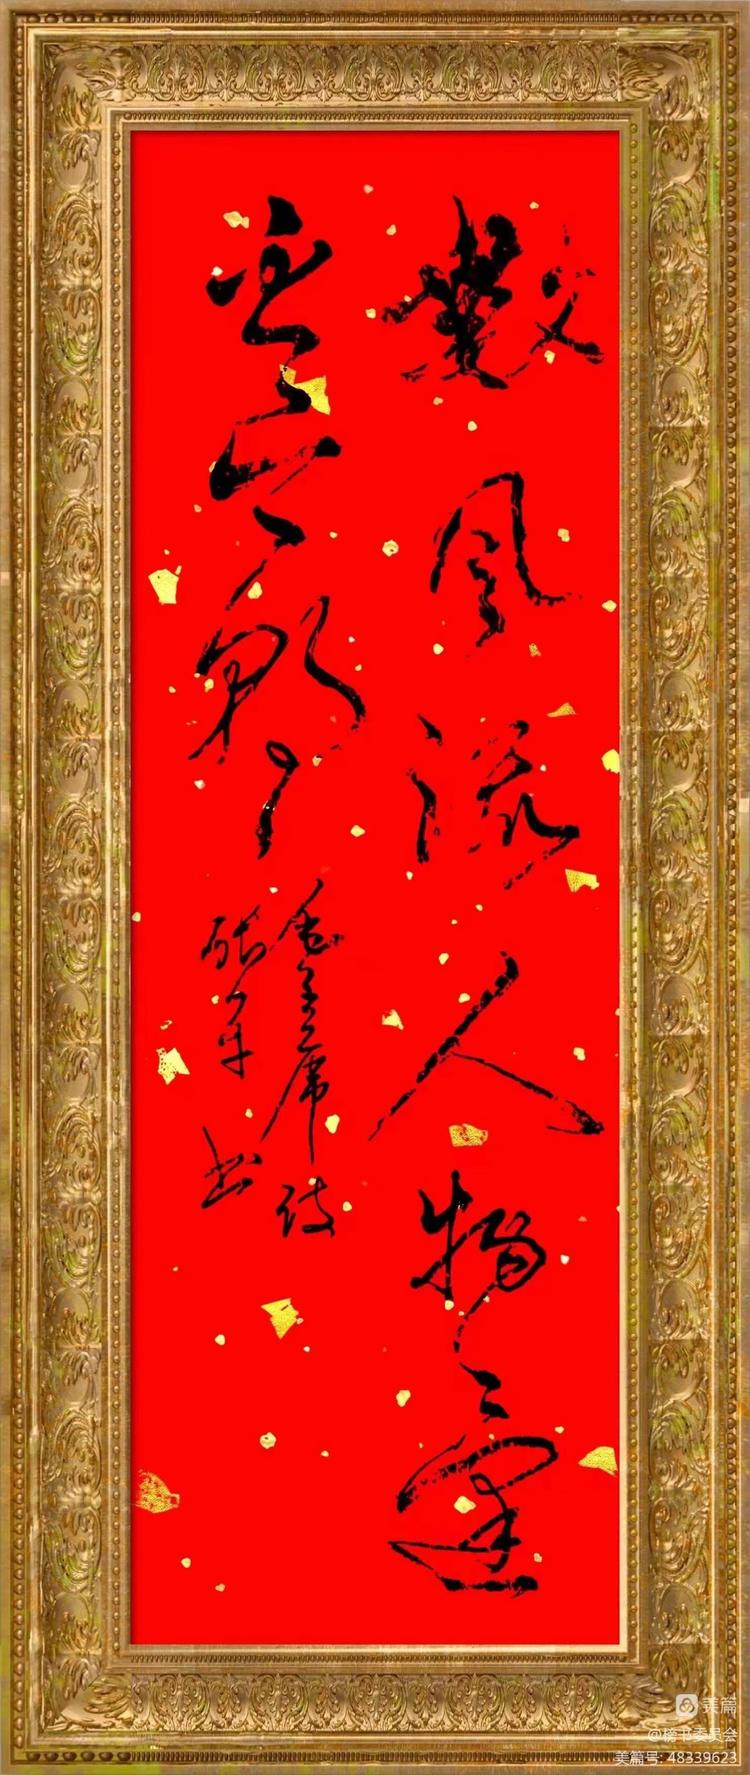 數風流人物還
看今朝
毛主席
张
书
美篇
@榜书委员会
美篇号: 48339623